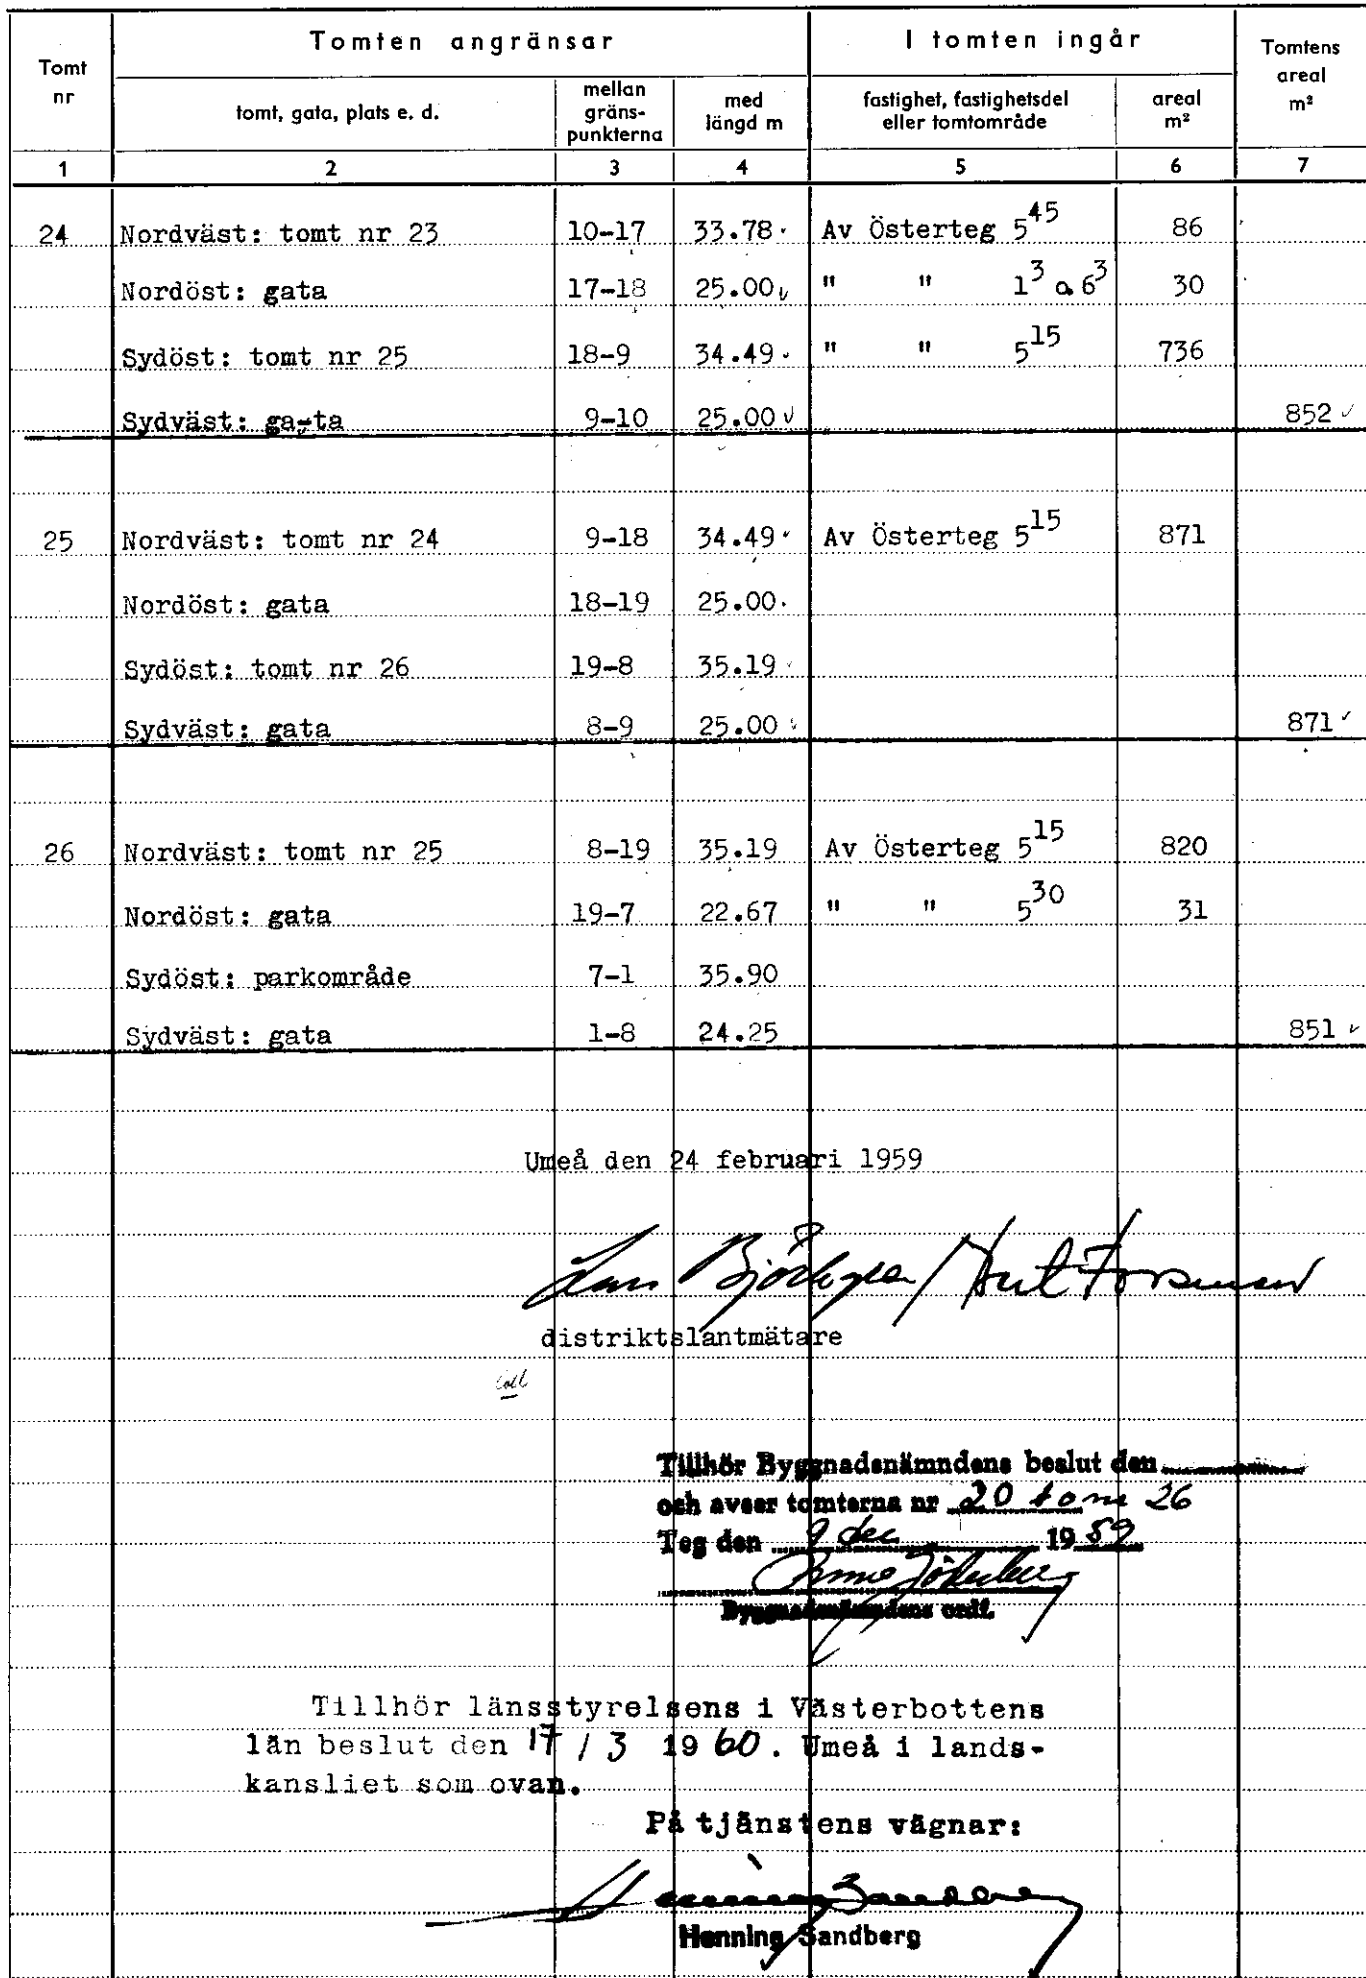 Tomt nr | Tomten angränsar | I tomten ingår | Tomtens areal m²
tomt, gata, plats e. d. | mellan gräns-punkterna | med längd m | fastighet, fastighetsdel eller tomtområde | areal m²
1 | 2 | 3 | 4 | 5 | 6 | 7
24 | Nordväst: tomt nr 23 | 10-17 | 33.78 | Av Österteg 5⁴⁵ | 86
Nordöst: gata | 17-18 | 25.00 | " " 1³ o. 6³ | 30
Sydöst: tomt nr 25 | 18-9 | 34.49 | " " 5¹⁵ | 736
Sydväst: ga-ta | 9-10 | 25.00 | 852
25 | Nordväst: tomt nr 24 | 9-18 | 34.49 | Av Österteg 5¹⁵ | 871
Nordöst: gata | 18-19 | 25.00
Sydöst: tomt nr 26 | 19-8 | 35.19
Sydväst: gata | 8-9 | 25.00 | 871
26 | Nordväst: tomt nr 25 | 8-19 | 35.19 | Av Österteg 5¹⁵ | 820
Nordöst: gata | 19-7 | 22.67 | " " 5³⁰ | 31
Sydöst: parkområde | 7-1 | 35.90
Sydväst: gata | 1-8 | 24.25 | 851
Umeå den 24 februari 1959
distriktslantmätare
Coll
Tillhör Byggnadsnämndens beslut den
och avser tomterna nr 20 tom 26
Teg den 9 dec 1959
Byggnadsnämndens ordf.
Tillhör länsstyrelsens i Västerbottens
län beslut den 17 / 3 1960. Umeå i lands-
kansliet som ovan.
På tjänstens vägnar:
Henning Sandberg
Henning Sandberg